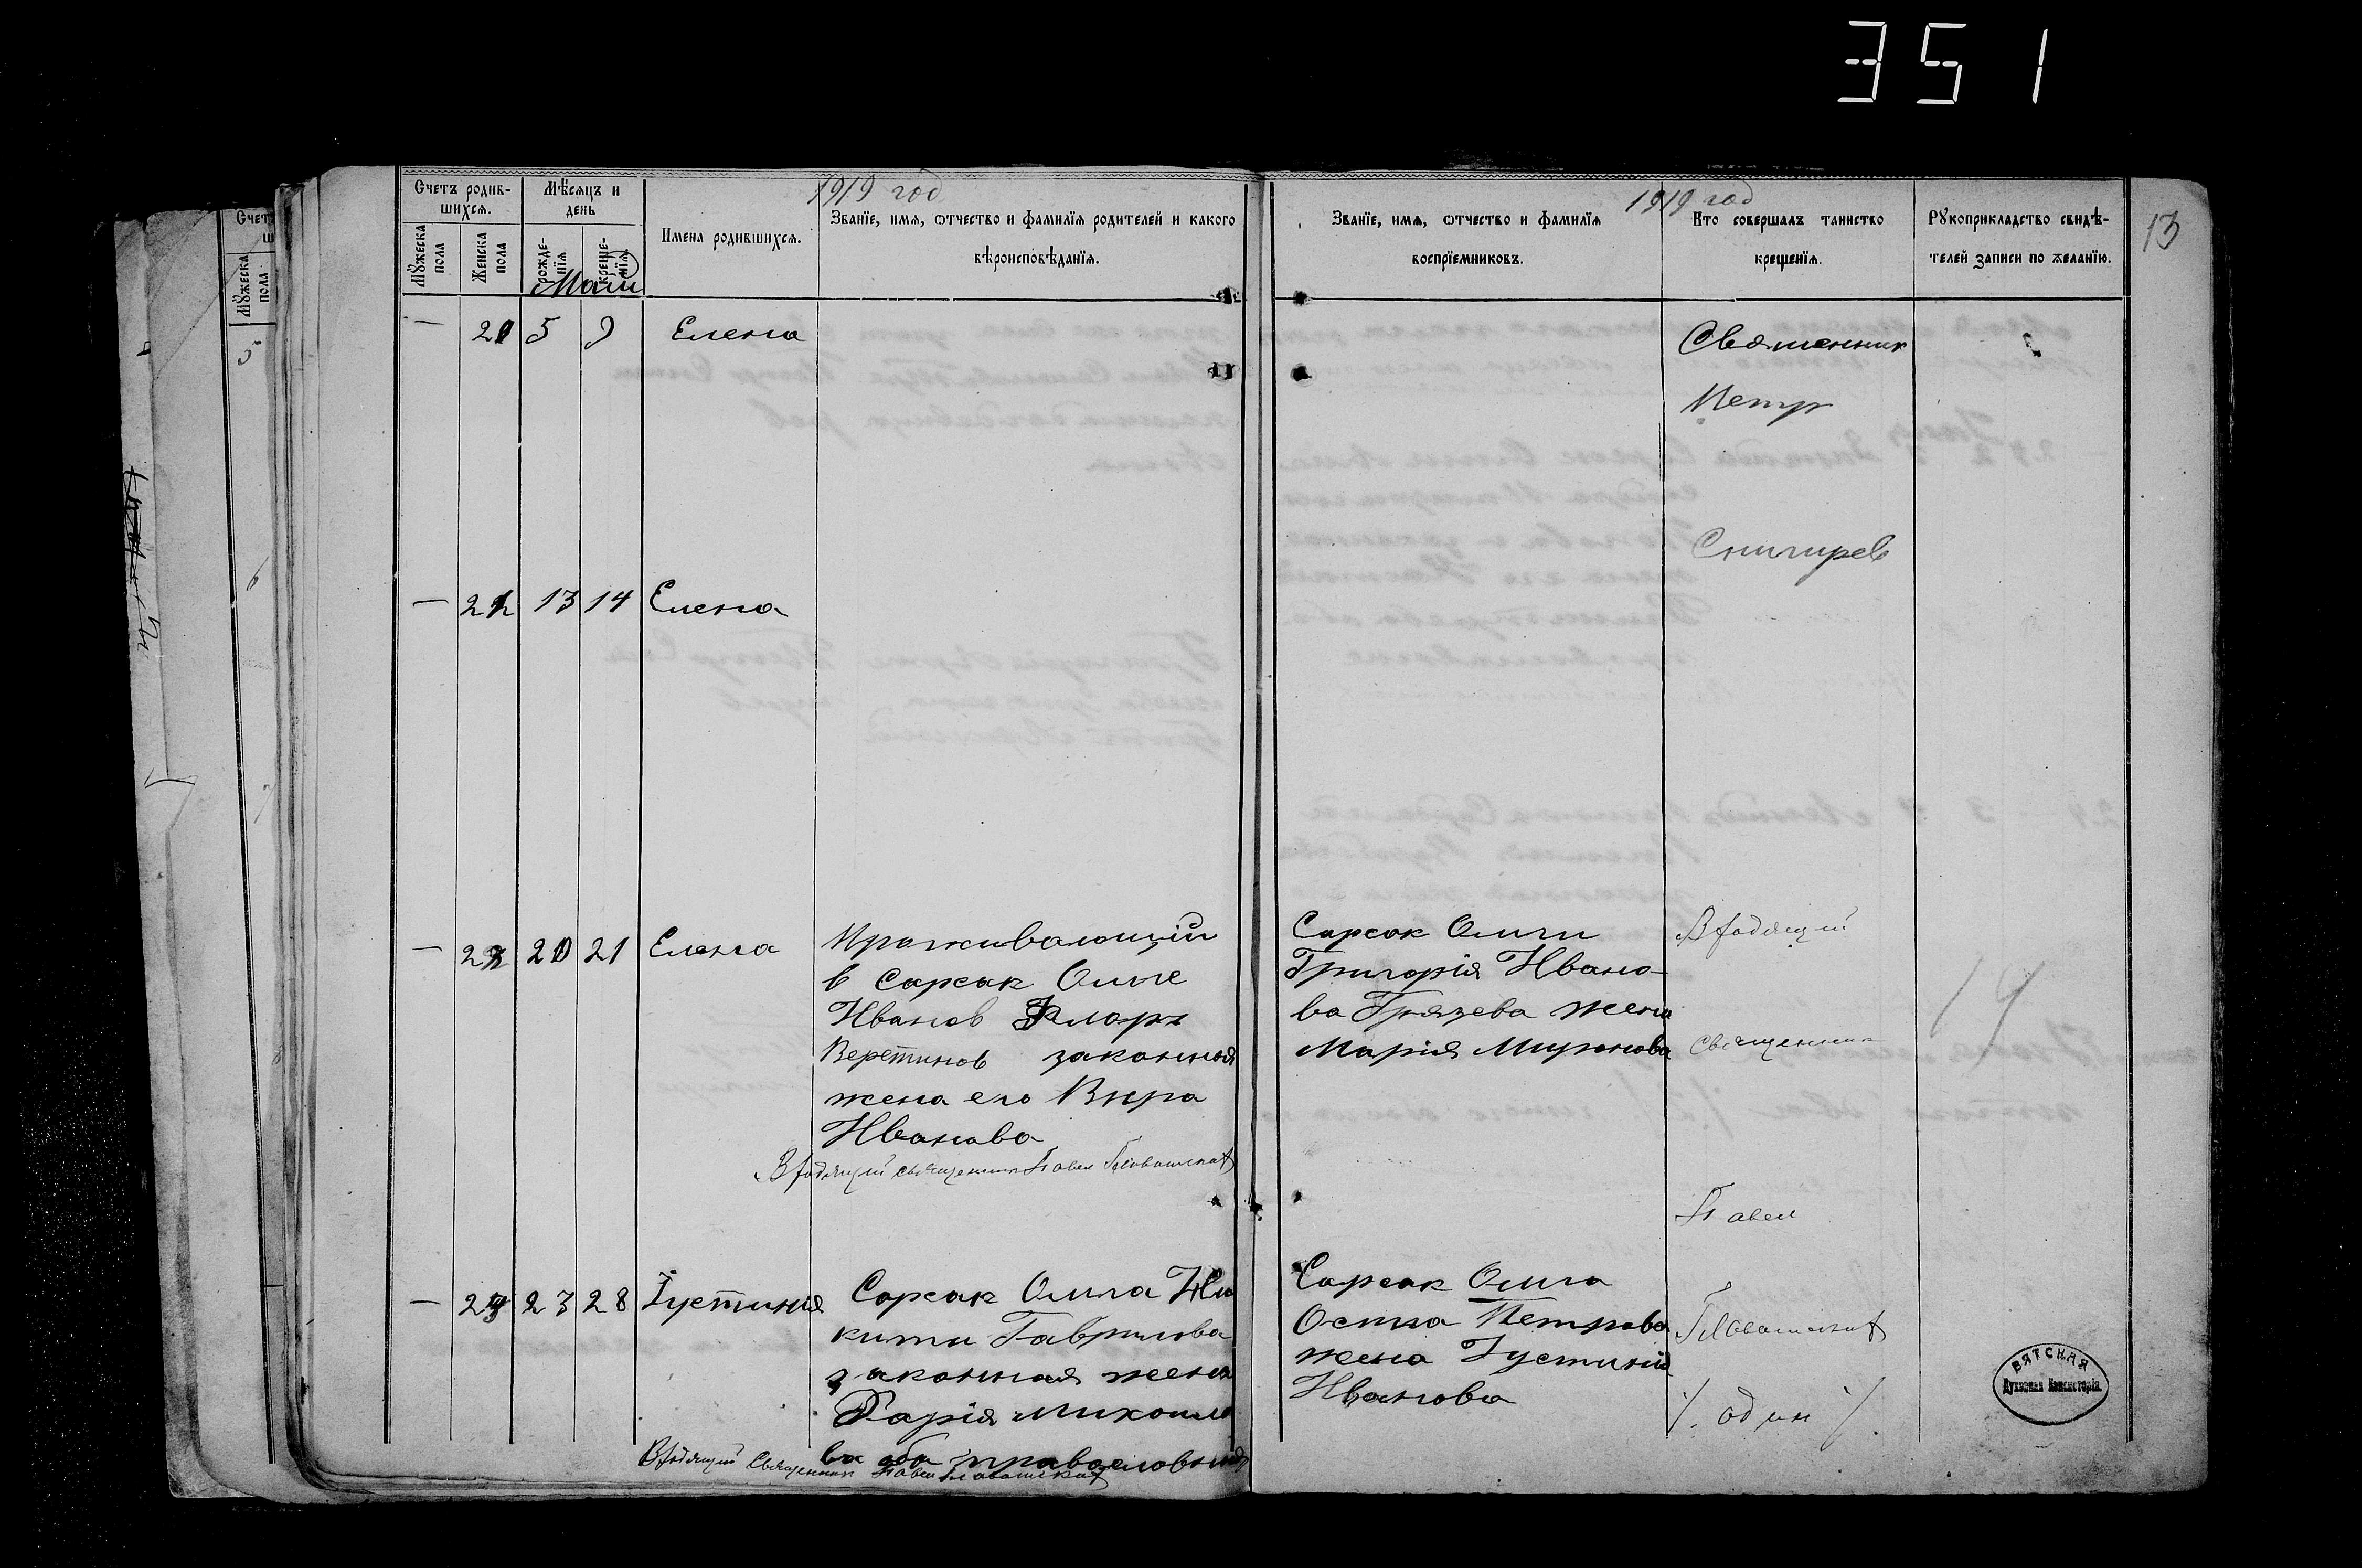 351
1919 год
1919 год
13
Счетъ родив-
шихся.
Мѣсяцъ и
день
Мужеска
пола
Женска
пола
рожде-
нія
креще-
нія
Имена родившихся.
Званіе, имя, отчество и фамилія родителей и какого
вѣроисповѣданія.
Званіе, имя, отчество и фамилія
воспріемниковъ.
Кто совершалъ таинство
крещенія.
Рукоприкладство свидѣ-
телей записи по желанію.
Счет
Мужеска
пола
5
6
7
Маи
— 21 5 9 Елена
Священник
Петр
Снигирев
— 22 13 14 Елена
— 20 21 Елена
Проживающій
в Сарсак Омге
Иванов Флоръ
Веретинов законная
жена его Вѣра
Иванова
Сарсак Омги
Григорія Ивано-
ва Грязева жена
Марія Миронова
Священник
Павел
— 23 28 Іустинія
Сарсак Омга Ни
киты Гаврилова
законная жена
Дарія Михаило
ва оба православныя
Сарсак Омга
Осипа Петрова
жена Іустинія
Иванова
/. один /.
14
ВЯТСКАЯ
Духовная Консисторія.